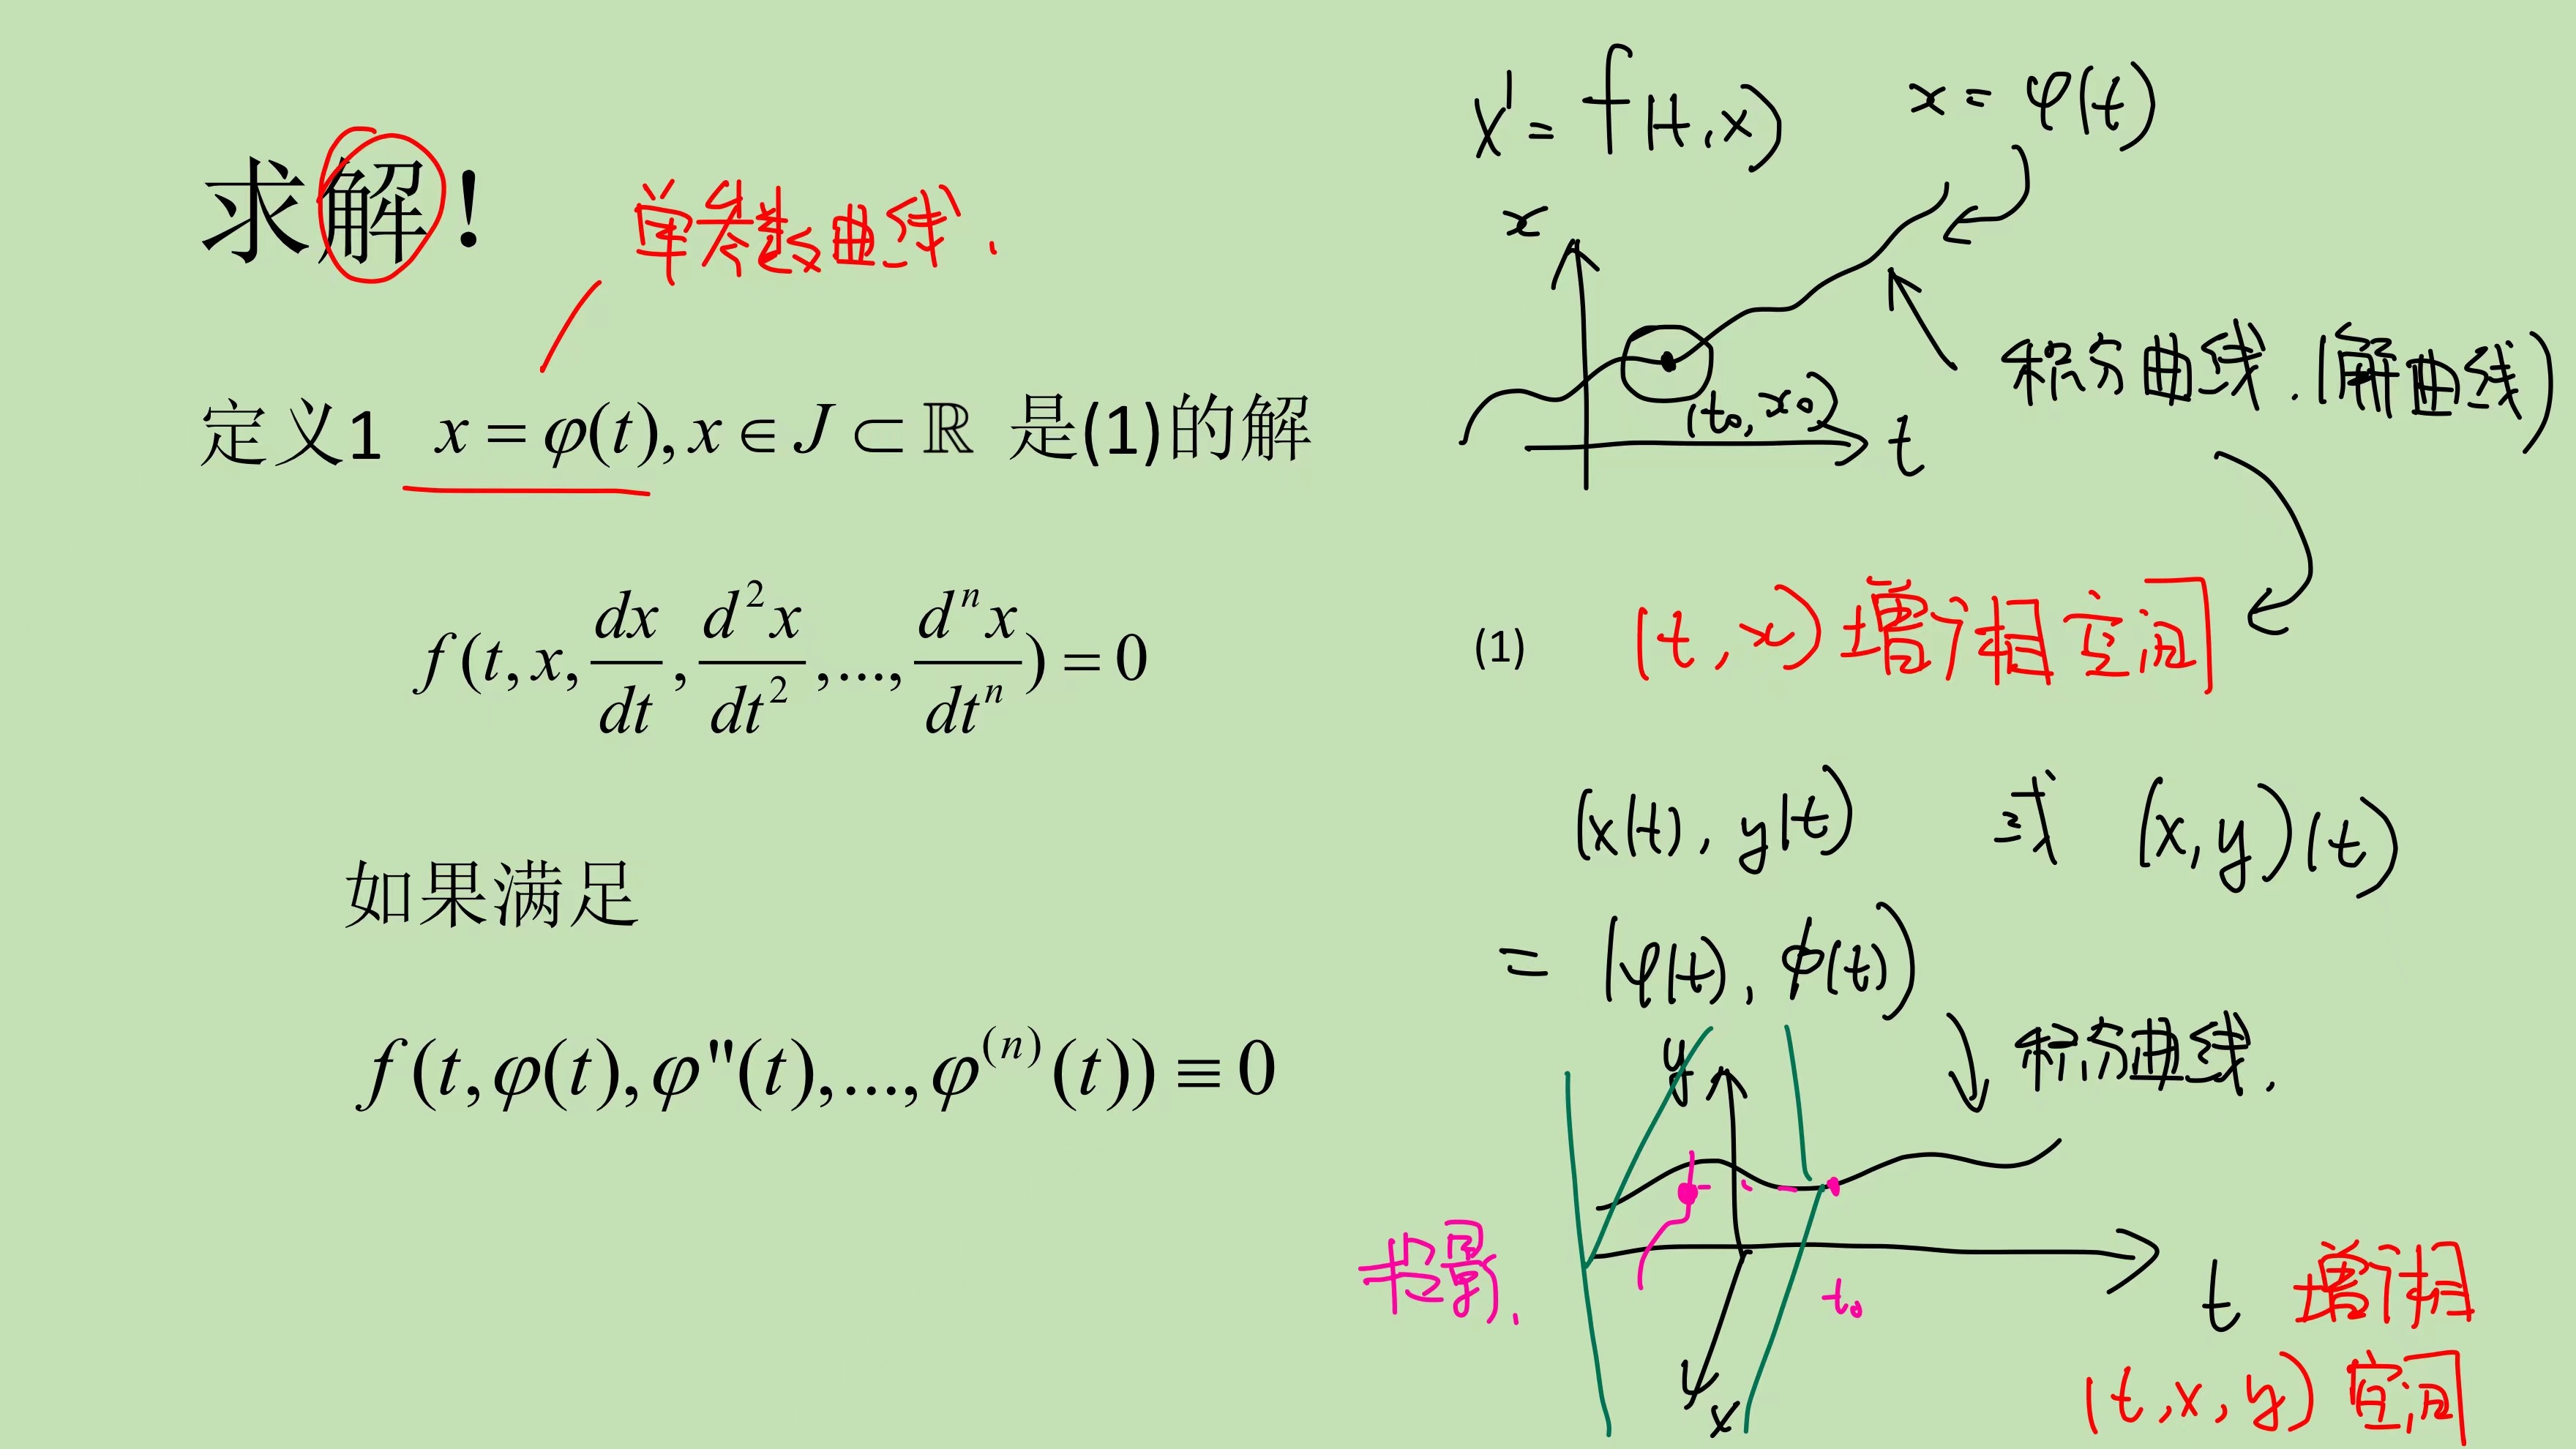 求解!
单参数曲线.
定义1 x = φ(t), x ∈ J ⊂ ℝ 是(1)的解
f(t, x, dx/dt, d²x/dt², ..., dⁿx/dtⁿ) = 0 (1)
如果满足
f(t, φ(t), φ''(t), ..., φ⁽ⁿ⁾(t)) ≡ 0
x' = f(t, x)
x = φ(t)
x
(t₀, x₀)
t
积分曲线. (解曲线)
(t, x) 增广相空间
(x(t), y(t) 或 (x, y)(t)
= (φ(t), ϕ(t))
积分曲线.
y
投影.
t₀
t
x
增广相
(t, x, y) 空间